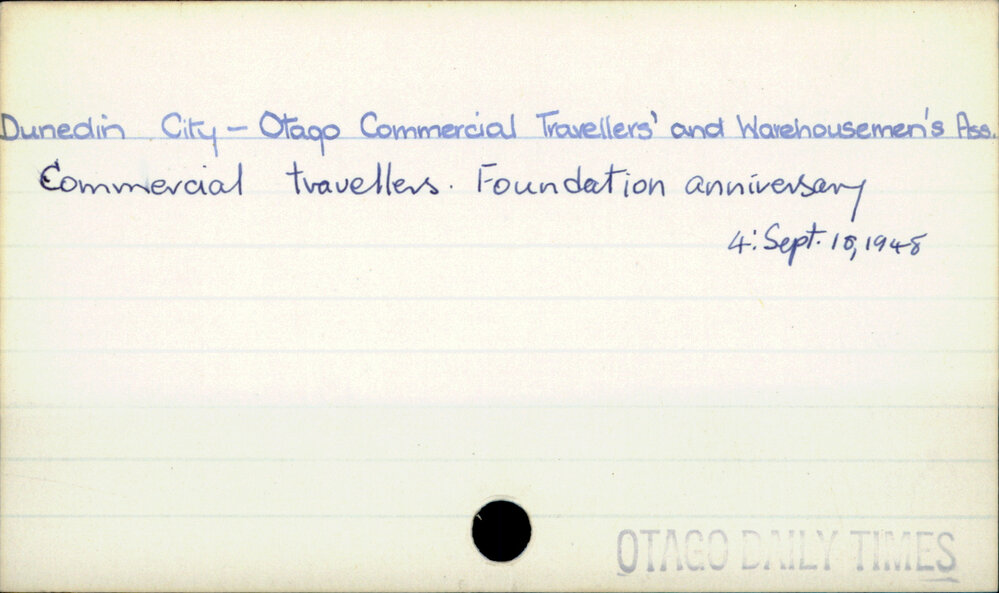 Dunedin City - Otago Commercial Travellers' and Warehousemen's Ass.
Commercial travellers. Foundation anniversary
4: Sept. 18, 1948
OTAGO DAILY TIMES